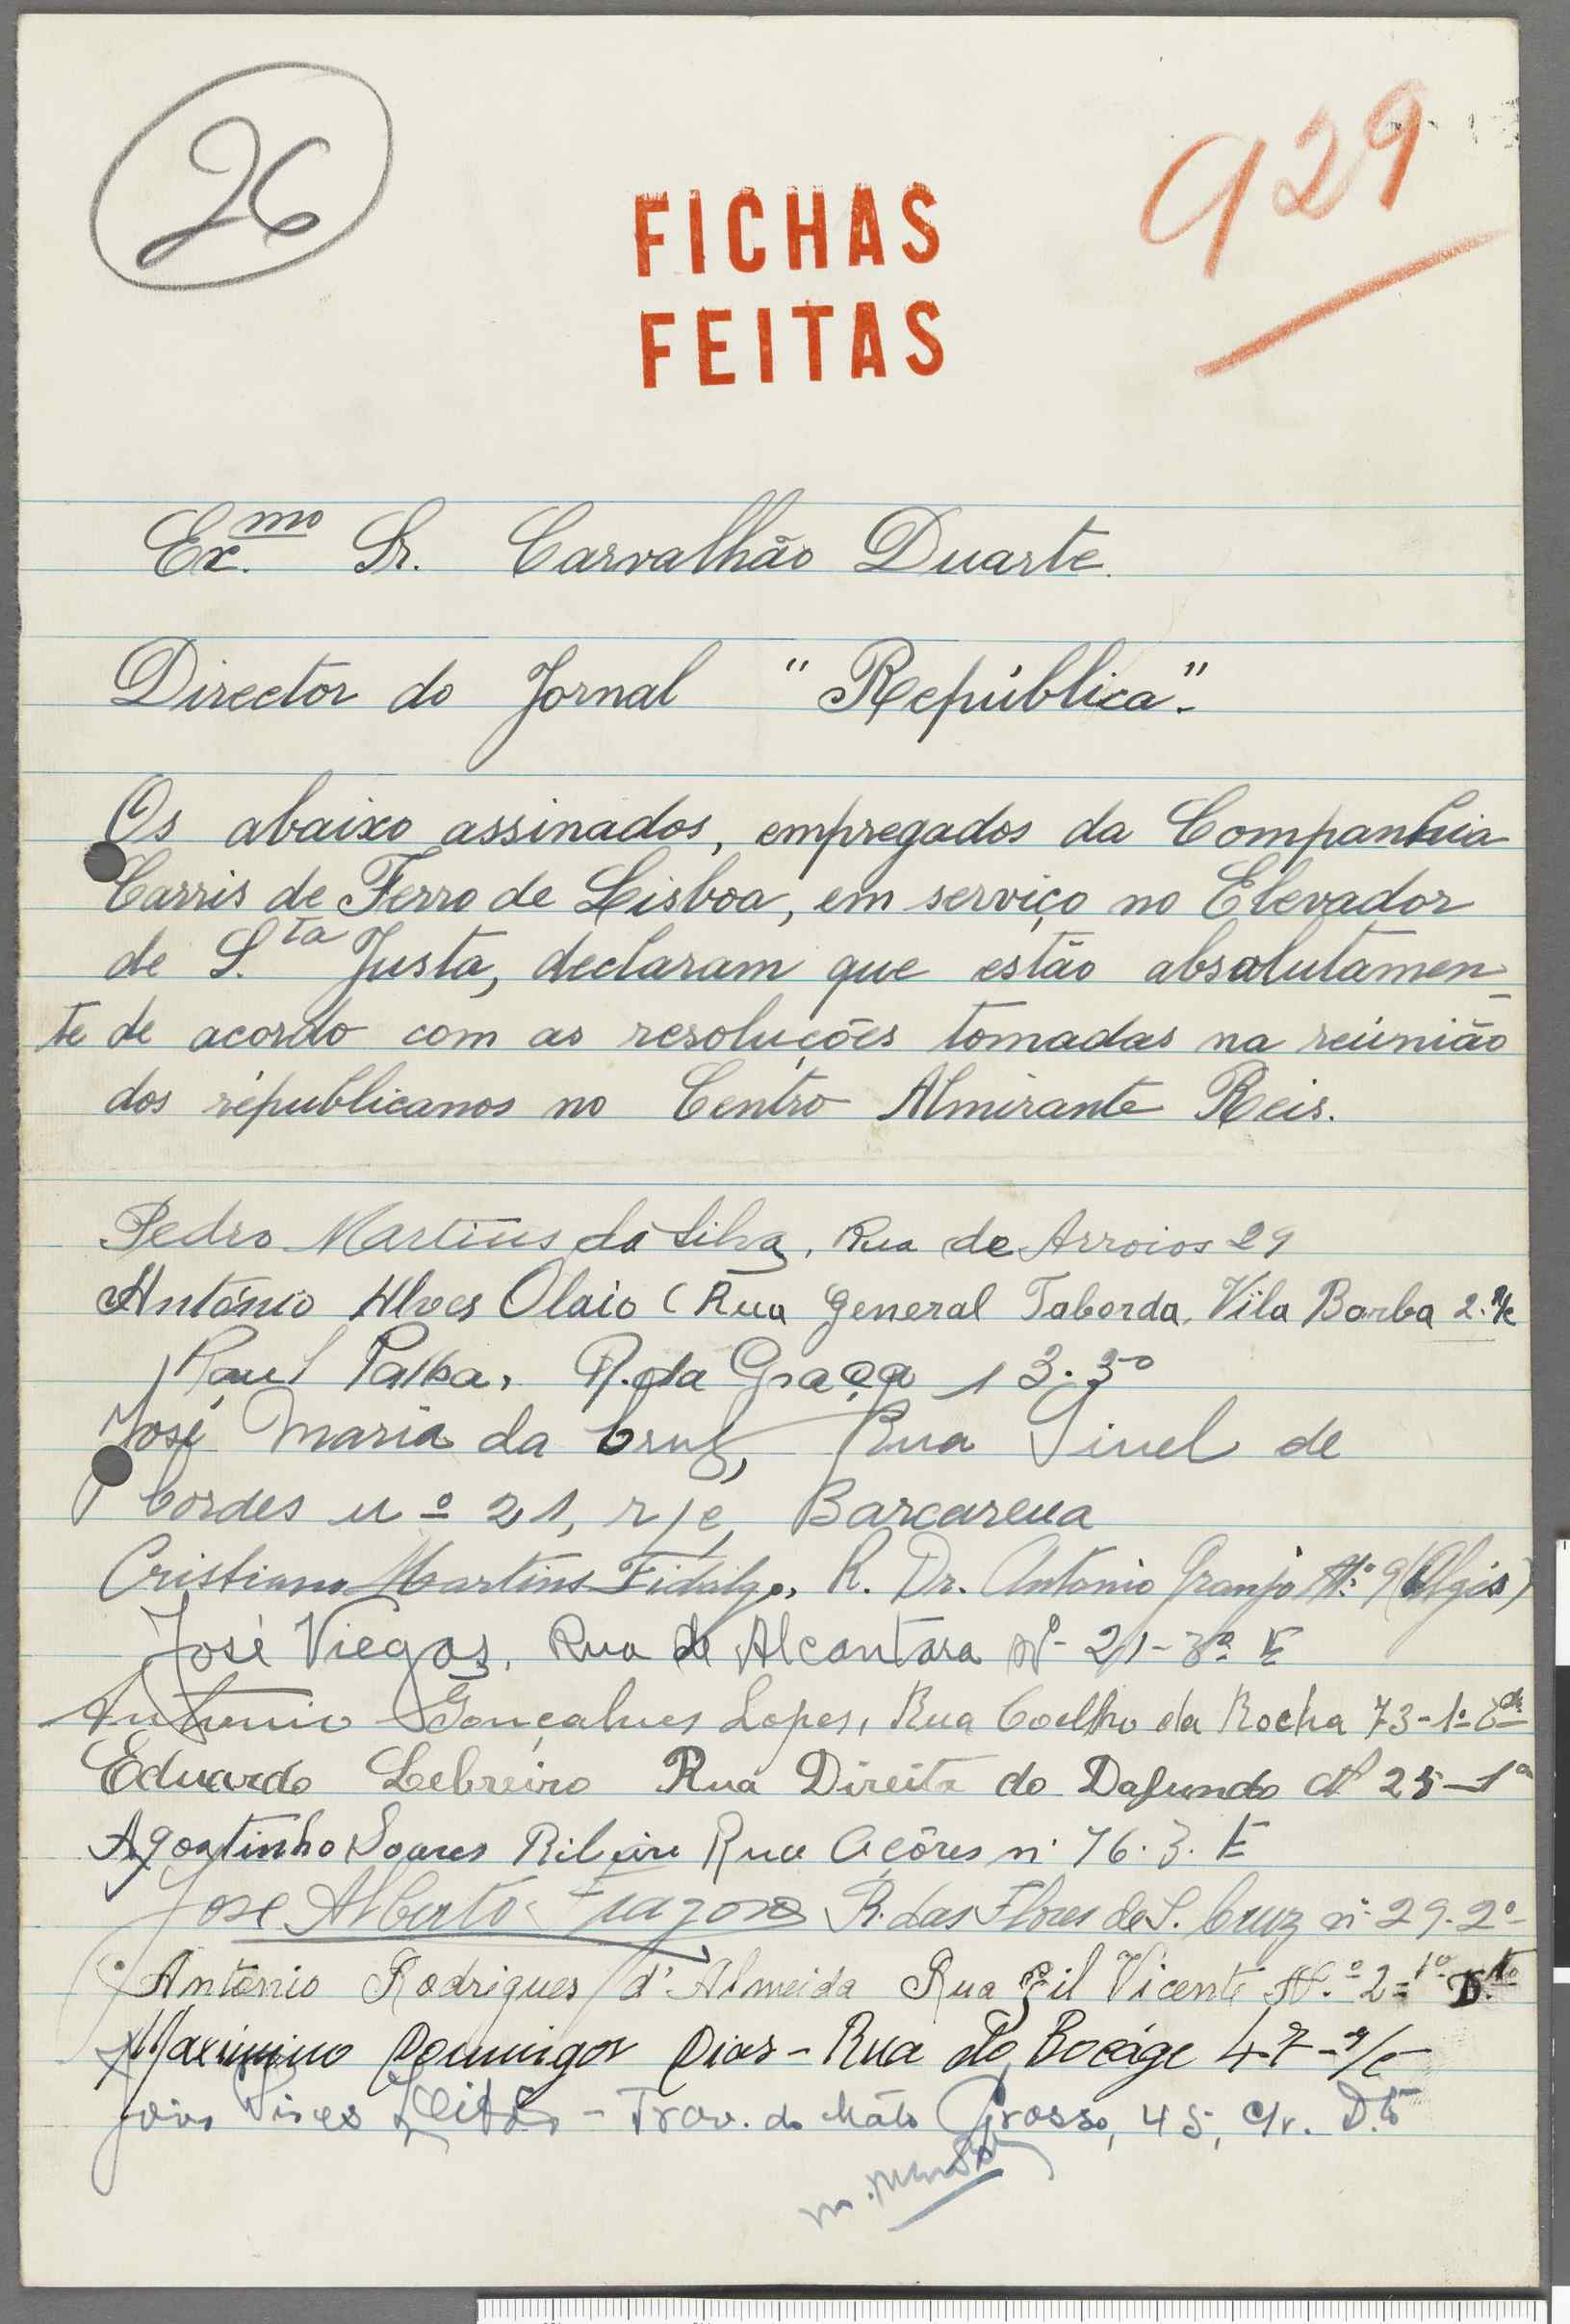 26
929
FICHAS
FEITAS
Ex.mo Sr. Carvalhão Duarte.
Director do Jornal "República".
Os abaixo assinados, empregados da Companhia
Carris de Ferro de Lisboa, em serviço no Elevador
de S.ta Justa, declaram que estão absolutamen-
te de acordo com as resoluções tomadas na reúnião
dos républicanos no Centro Almirante Reis.
Pedro Martins da Silva, Rua de Arroios 29
António Alves Olaio (Rua General Taborda, Vila Barba 2. r/c
Raul Palba, R. da Graça 13.3º
José Maria da Cruz, Rua Pinel de
Cordes nº 21, r/c, Barcarena
Cristiano Martins Fidalgo, R. Dr. Antonio Granjo Nº 9 (Algés)
José Viegas, Rua de Alcantara Nº 21-3º E
Antonio Gonçalves Lopes, Rua Coelho da Rocha 73-1º
Eduardo Lebreiro Rua Direita do Dafundo Nº 25-1º
Agostinho Soares Ribeiro Rua Açôres nº 76.3. E
Jose Alberto R. das Flores de S. Cruz nº 29.2º
Antonio Rodrigues d'Almeida Rua Gil Vicente Nº 2-1º D.to
Maximino Domingos Dias - Rua do Bocáge 47-r/c
João Pires Leitão - Trav. do Máto Grosso, 45, c/v. D.to